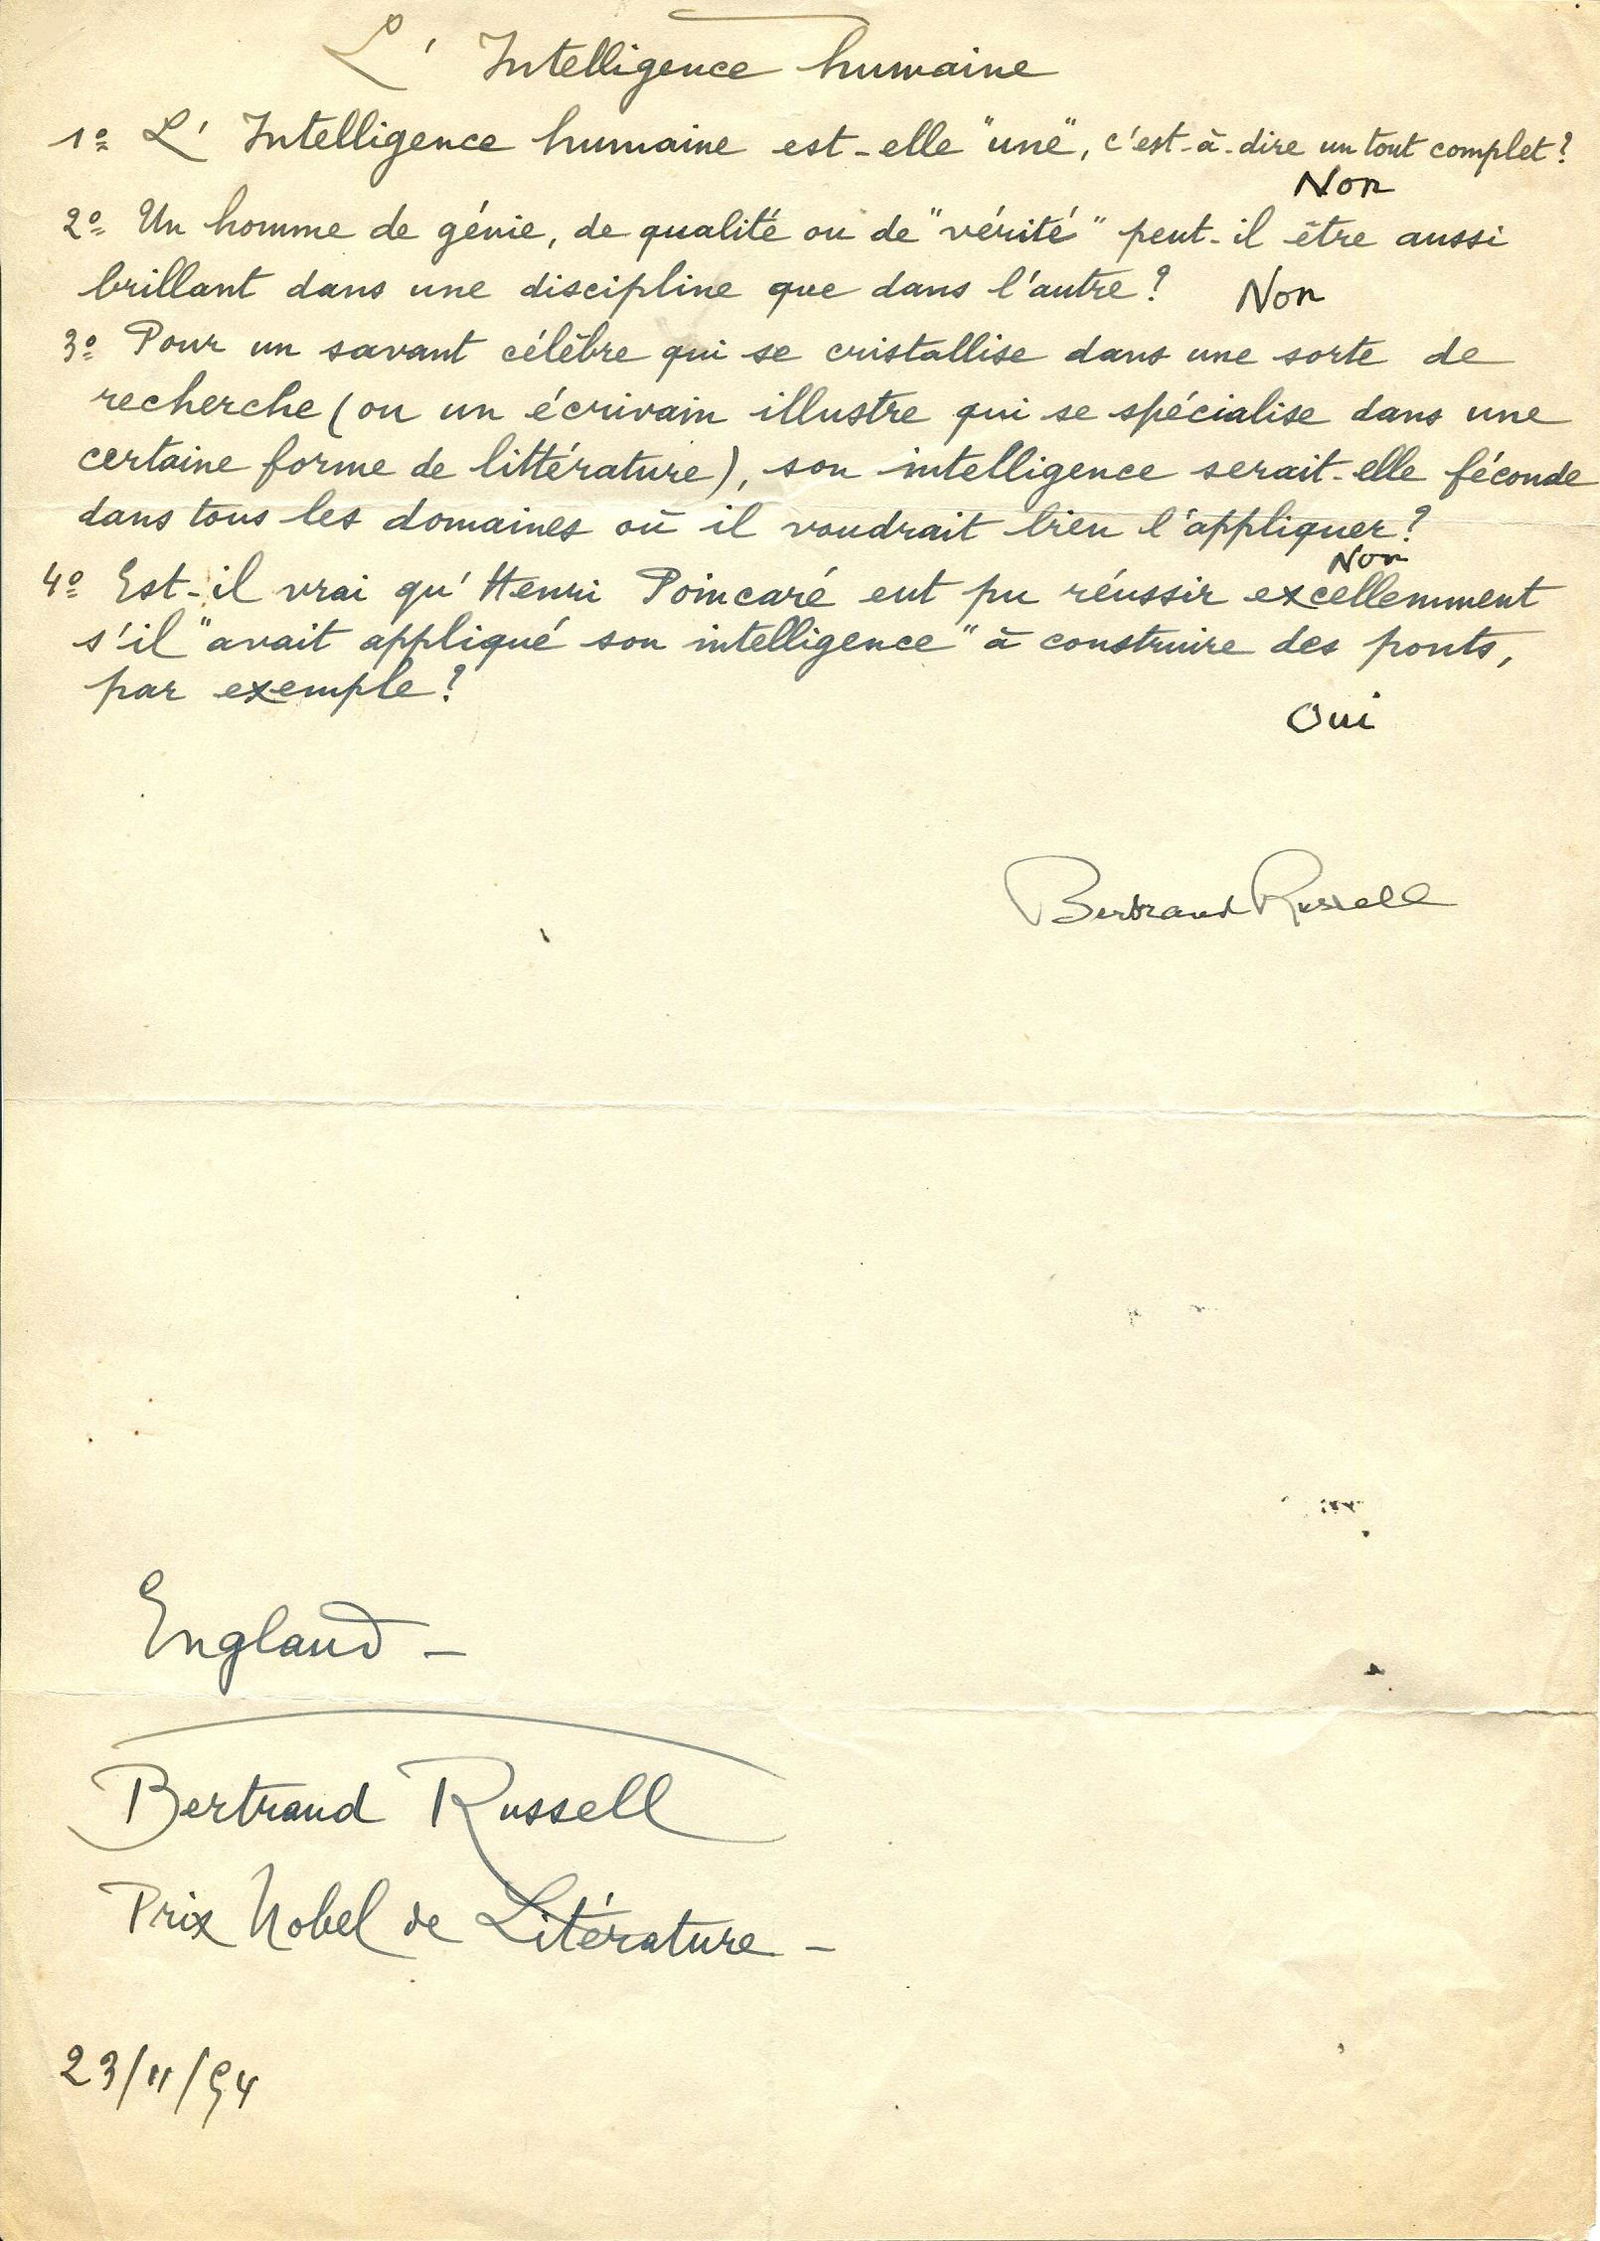 L' Intelligence humaine
1º L' Intelligence humaine est-elle "une", c'est-à-dire un tout complet?
Non
2º Un homme de génie, de qualité ou de "vérité" peut-il être aussi
brillant dans une discipline que dans l'autre? Non
3º Pour un savant célèbre qui se cristallise dans une sorte de
recherche (ou un écrivain illustre qui se spécialise dans une
certaine forme de littérature), son intelligence serait-elle féconde
dans tous les domaines où il voudrait bien l'appliquer?
Non
4º Est-il vrai qu'Henri Poincaré eut pu réussir excellemment
s'il "avait appliqué son intelligence" à construire des ponts,
par exemple?
Oui
Bertrand Russell
England -
Bertrand Russell
Prix Nobel de Litérature -
23/11/54